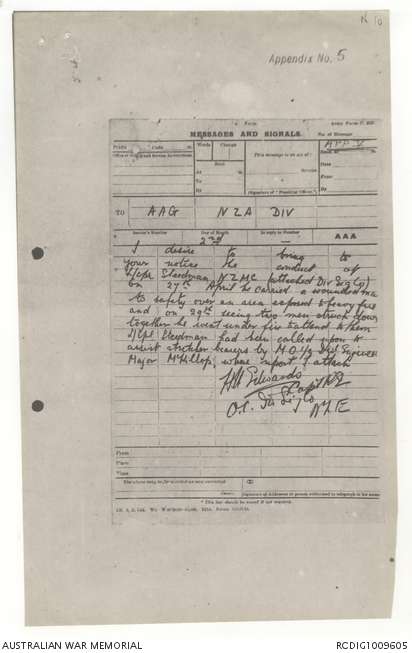 Appendix No. 5
Army Form C.
MESSAGES AND SIGNALS.
No. of Message
Prefix Code m.
Words
Charge
This message is on a/c of:
APP. V
Sent
At m.
To
By
Service.
(Signature of "Franking Officer.")
Date
From
By
TO AAG NZA DIV
Sender's Number
Day of Month
In reply to Number
AAA
2nd
I desire to bring to
your notice the conduct of
L/Cpl Steedman NZMC (attached Div Sig Co)
on 27th April he carried a wounded man
to safety over an area exposed to heavy fire
and on 29th seeing two men struck down
together he went under fire to attend to them
L/Cpl Steedman had been called upon to
assist stretcher bearers by M.O. Div Engineers
Major McKillop, whose report I attach
Edwards
Capt
O.C. Div Sig Co
NZE
From
Place
Time
The above may be forwarded as now corrected.
(Z)
Censor.
Signature of Addressor or person authorised to telegraph in his name
* This line should be erased if not required.
AUSTRALIAN WAR MEMORIAL
RCDIG1009605